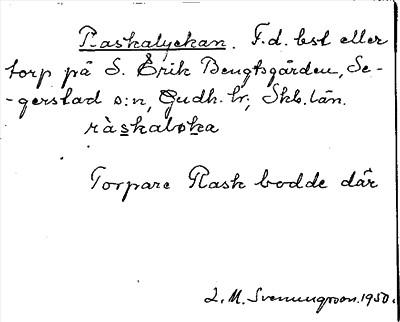 Raskalyckan. F.d. bst eller
torp på S. Erik Bengtsgården, Se-
-gerstad s:n, Gudh. hr; Skb. län.
ràskaløka
Torpare Rask bodde där
L. M. Svenungsson. 1950.